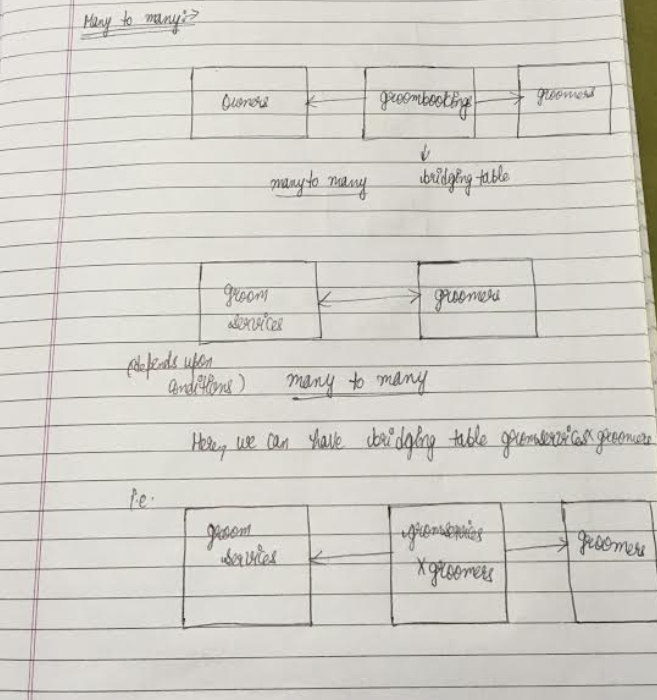 Many to many:->
Owners
groombooking
groomers
many to many
bridging table
groom
services
groomers
(depends upon
conditions)
many to many
Here, we can have bridging table groomservices x groomers
i.e.
groom
services
groomservices
x groomers
groomers